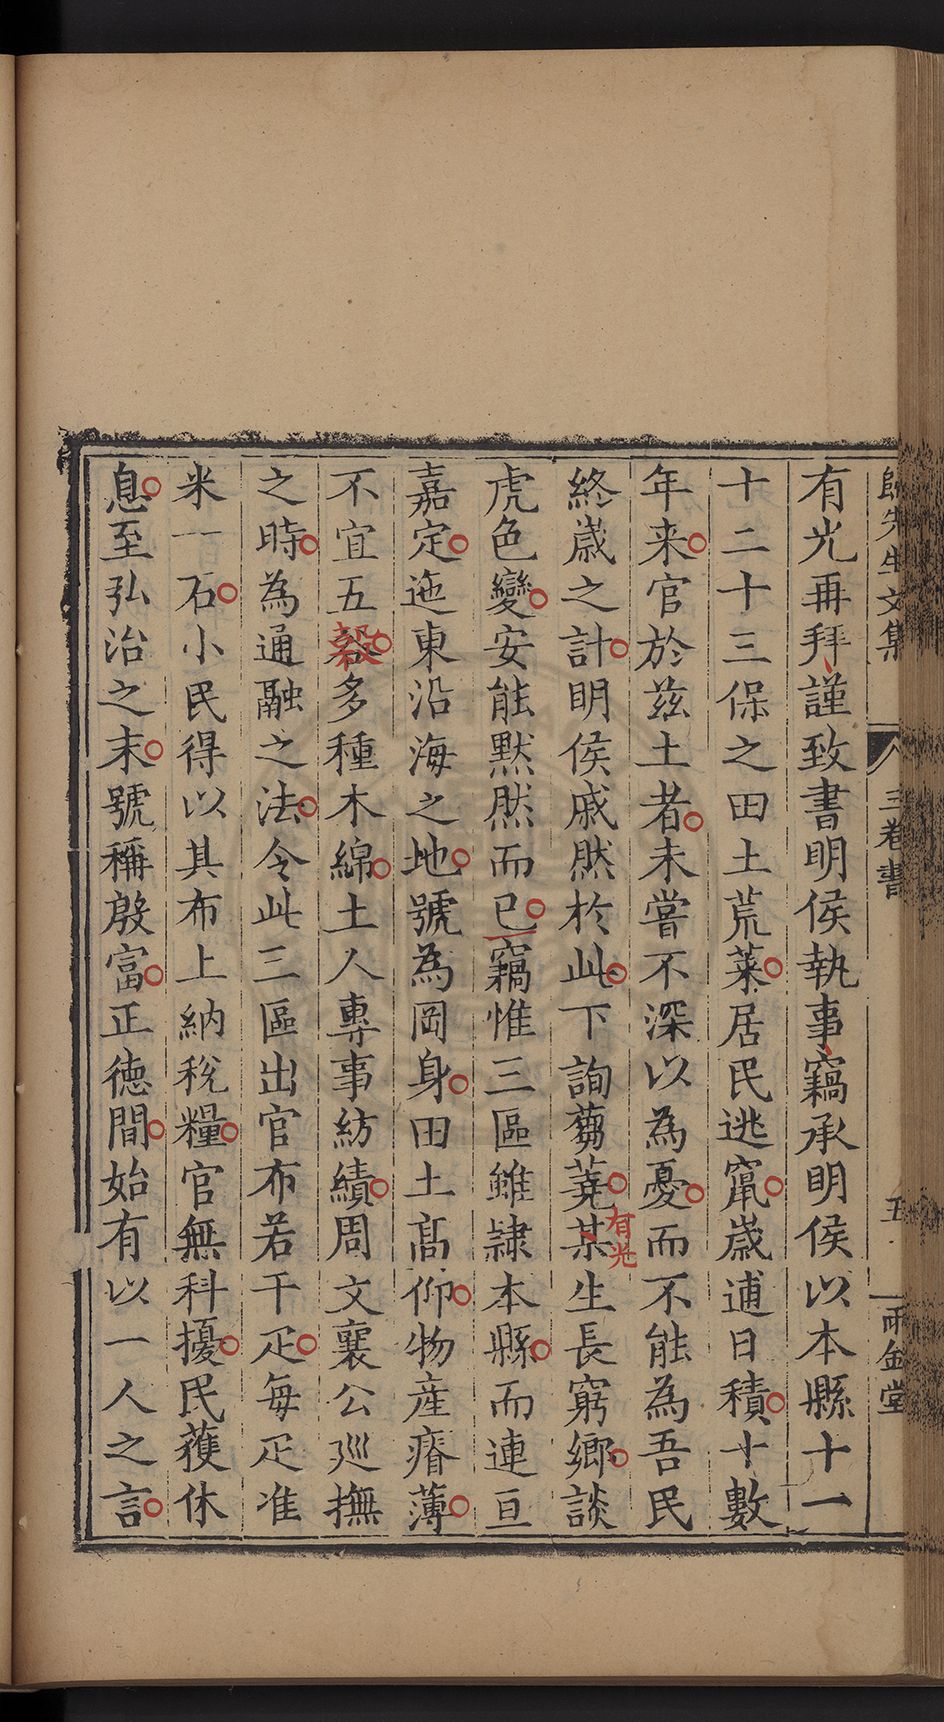 歸先生文集
三卷書
五
雨金堂
有光再拜謹致書明侯執事竊承明侯以本縣十一
十二十三保之田土荒萊居民逃竄嵗逋日積十數
年来官於兹土者未嘗不深以為憂而不能為吾民
終嵗之計明侯戚然於此下詢蒭蕘某生長窮鄉談
有光
虎色變安能默然而已竊惟三區雖隷本縣而連亘
嘉定迤東沿海之地號為岡身田土髙仰物産瘠薄
不宜五穀多種木綿土人專事紡績周文襄公廵撫
之時為通融之法令此三區出官布若干疋每疋准
米一石小民得以其布上納稅糧官無科擾民獲休
息至弘治之末號稱殷富正徳間始有以一人之言